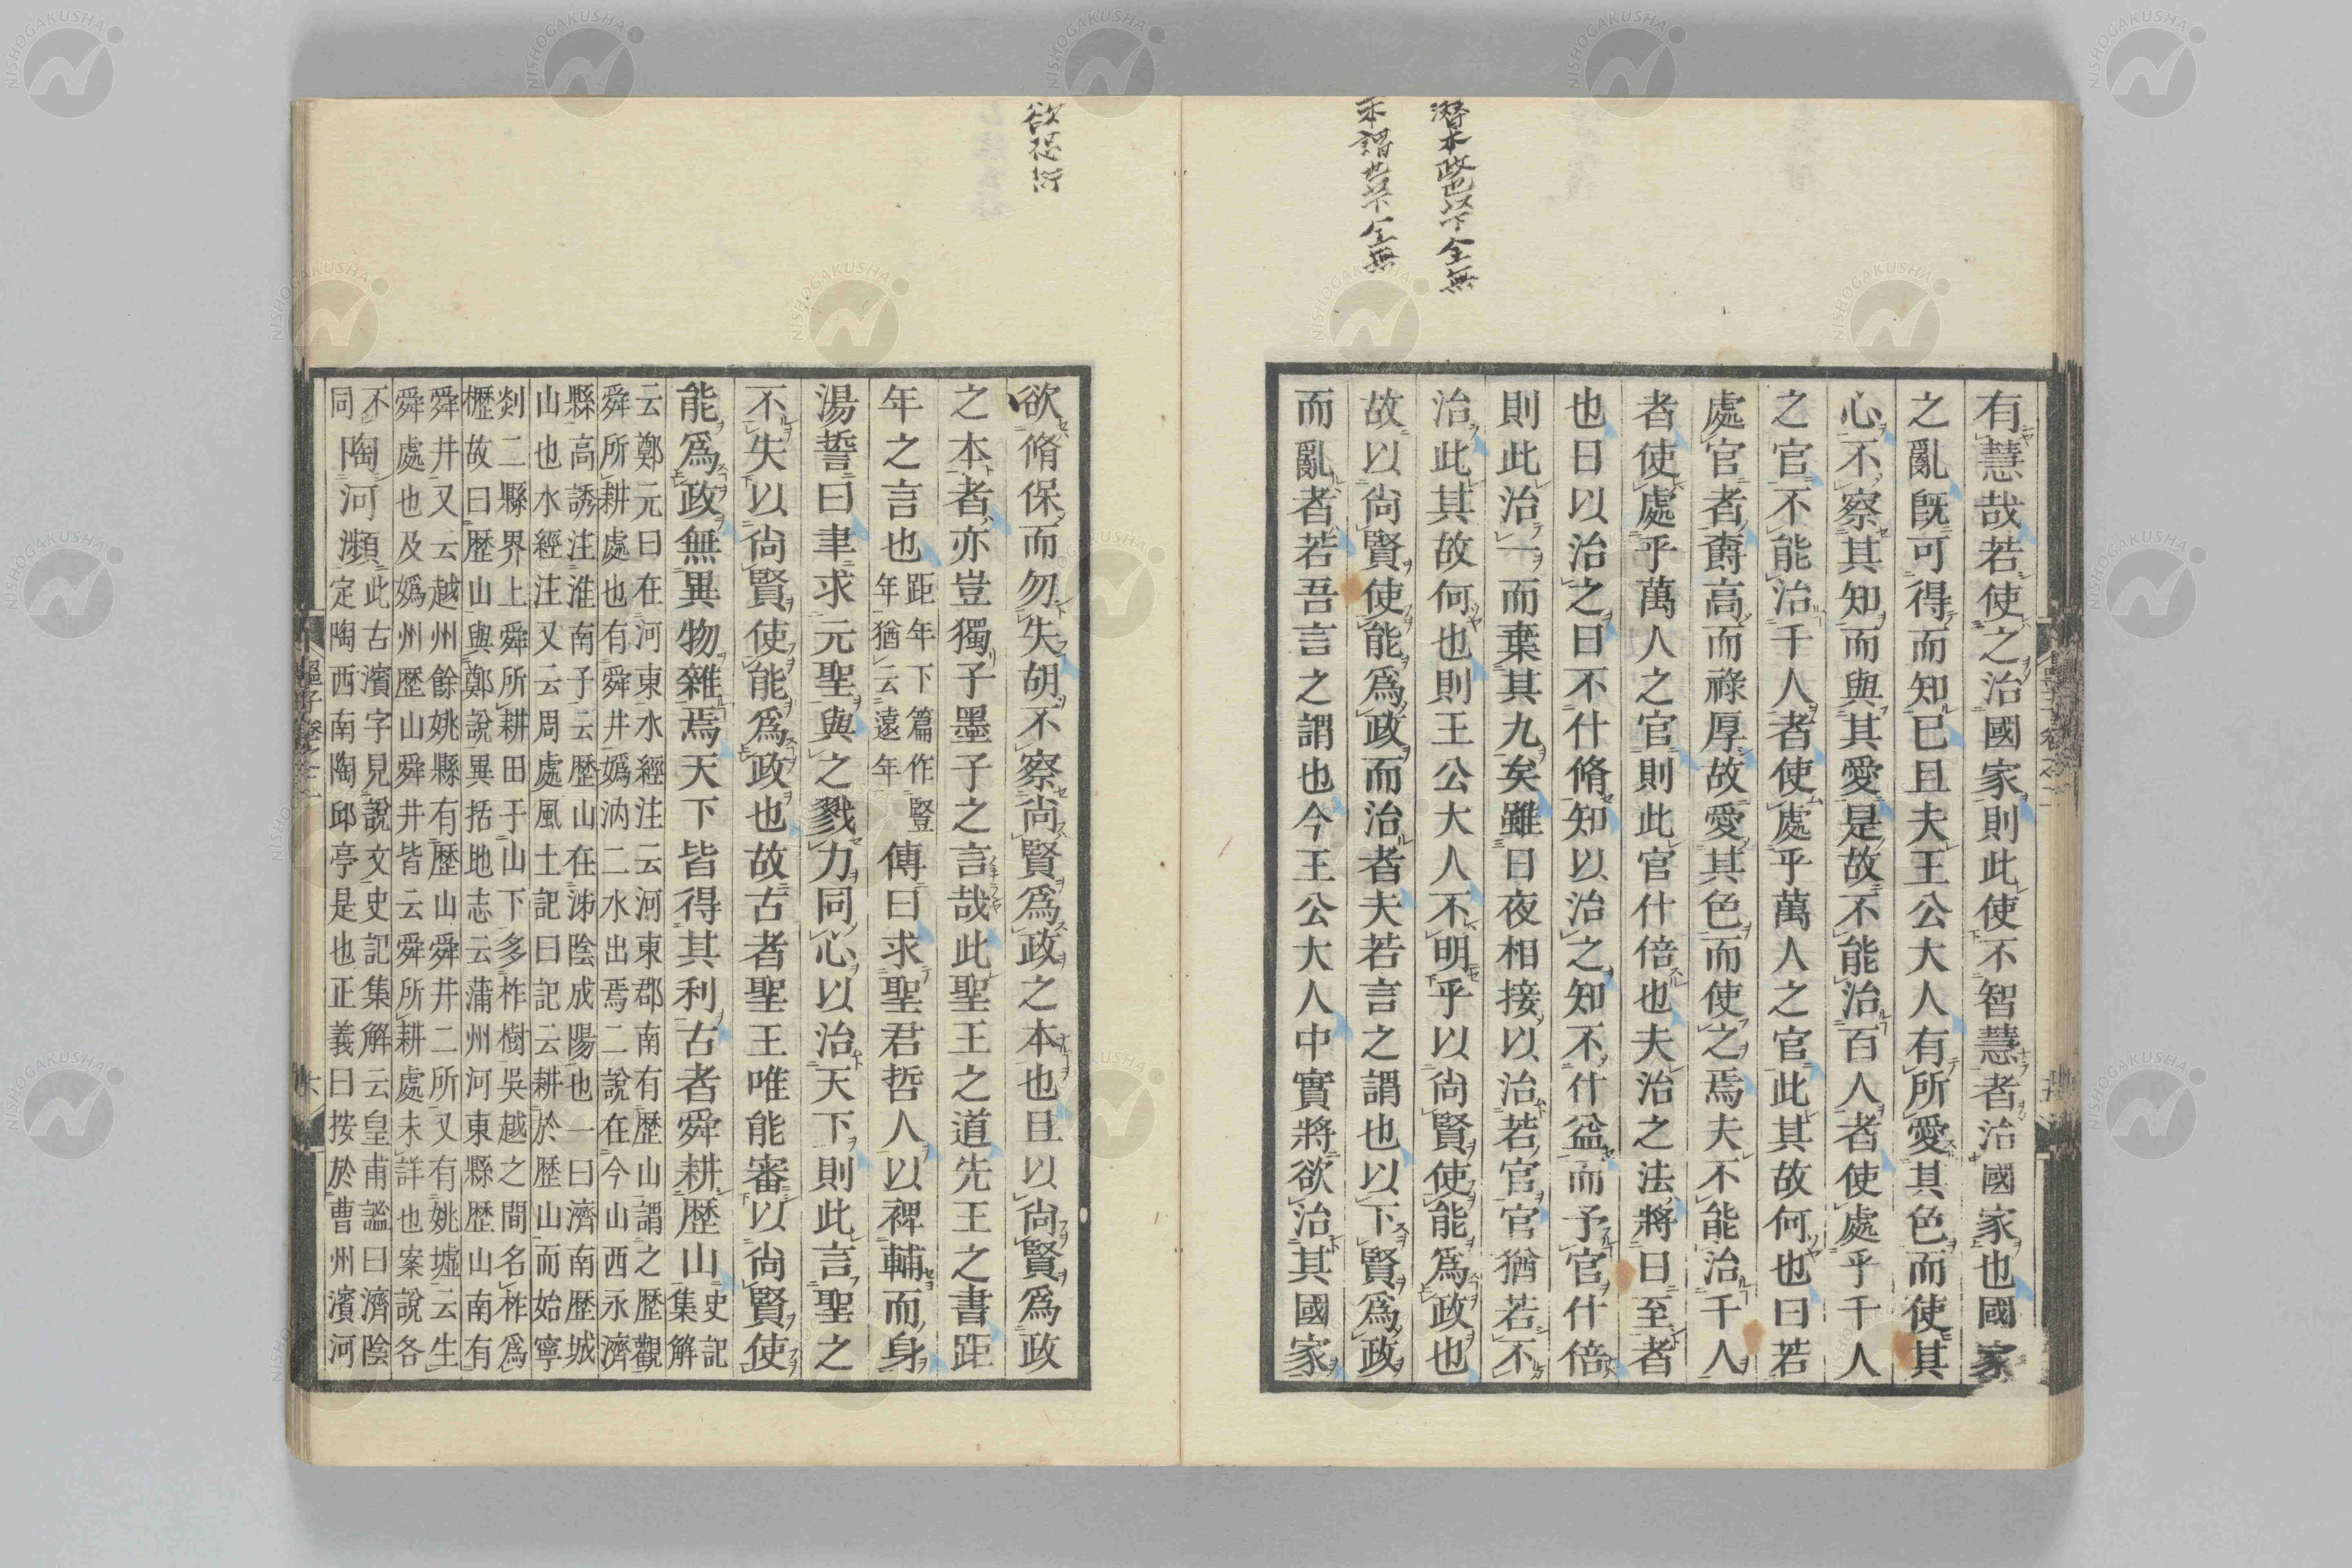 潛本政也以下全無
本謂也以下全無
有慧哉若使之治國家則此使不智慧者治國家也國家
之亂旣可得而知已且夫王公大人有所愛其色而使其
心不察其知而與其愛是故不能治百人者使處乎千人
之官不能治千人者使處乎萬人之官此其故何也曰若
處官者爵高而祿厚故愛其色而使之焉夫不能治千人
者使處乎萬人之官則此官什倍也夫治之法將日至者
也日以治之日不什脩知以治之知不什益而予官什倍
則此治一而棄其九矣雖日夜相接以治若官官猶若不
治此其故何也則王公大人不明乎以尙賢使能爲政也
故以尙賢使能爲政而治者夫若言之謂也以下賢爲政
而亂者若吾言之謂也今王公大人中實將欲治其國家
欲脩保而勿失胡不察尙賢爲政之本也且以尙賢爲政
之本者亦豈獨子墨子之言哉此聖王之道先王之書距
年之言也距年下篇作豎年猶云遠年傳曰求聖君哲人以裨輔而身
湯誓曰聿求元聖與之戮力同心以治天下則此言聖之
不失以尙賢使能爲政也故古者聖王唯能審以尙賢使
能爲政無異物雜焉天下皆得其利古者舜耕歷山史記集解
云鄭元曰在河東水經注云河東郡南有歷山謂之歷觀
舜所耕處也有舜井嬀汭二水出焉二說在今山西永濟
縣高誘注淮南子云歷山在泲陰成陽也一曰濟南歷城
山也水經注又云周處風土記曰記云耕於歷山而始寧
剡二縣界上舜所耕田于山下多柞樹吳越之間名柞爲
櫪故曰歷山與鄭說異括地志云蒲州河東縣歷山南有
舜井又云越州餘姚縣有歷山舜井二所又有姚墟云生
舜處也及嬀州歷山舜井皆云舜所耕處未詳也案說各
不同陶河瀕此古濱字見說文史記集解云皇甫謐曰濟陰
定陶西南陶邱亭是也正義曰按於曹州濱河